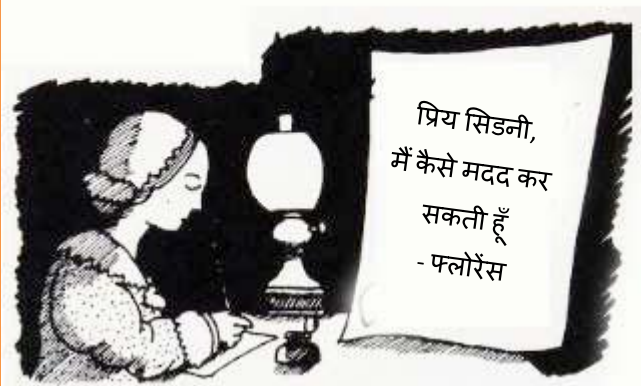 प्रिय सिडनी,
मैं कैसे मदद कर
सकती हूँ
- फ्लोरेंस